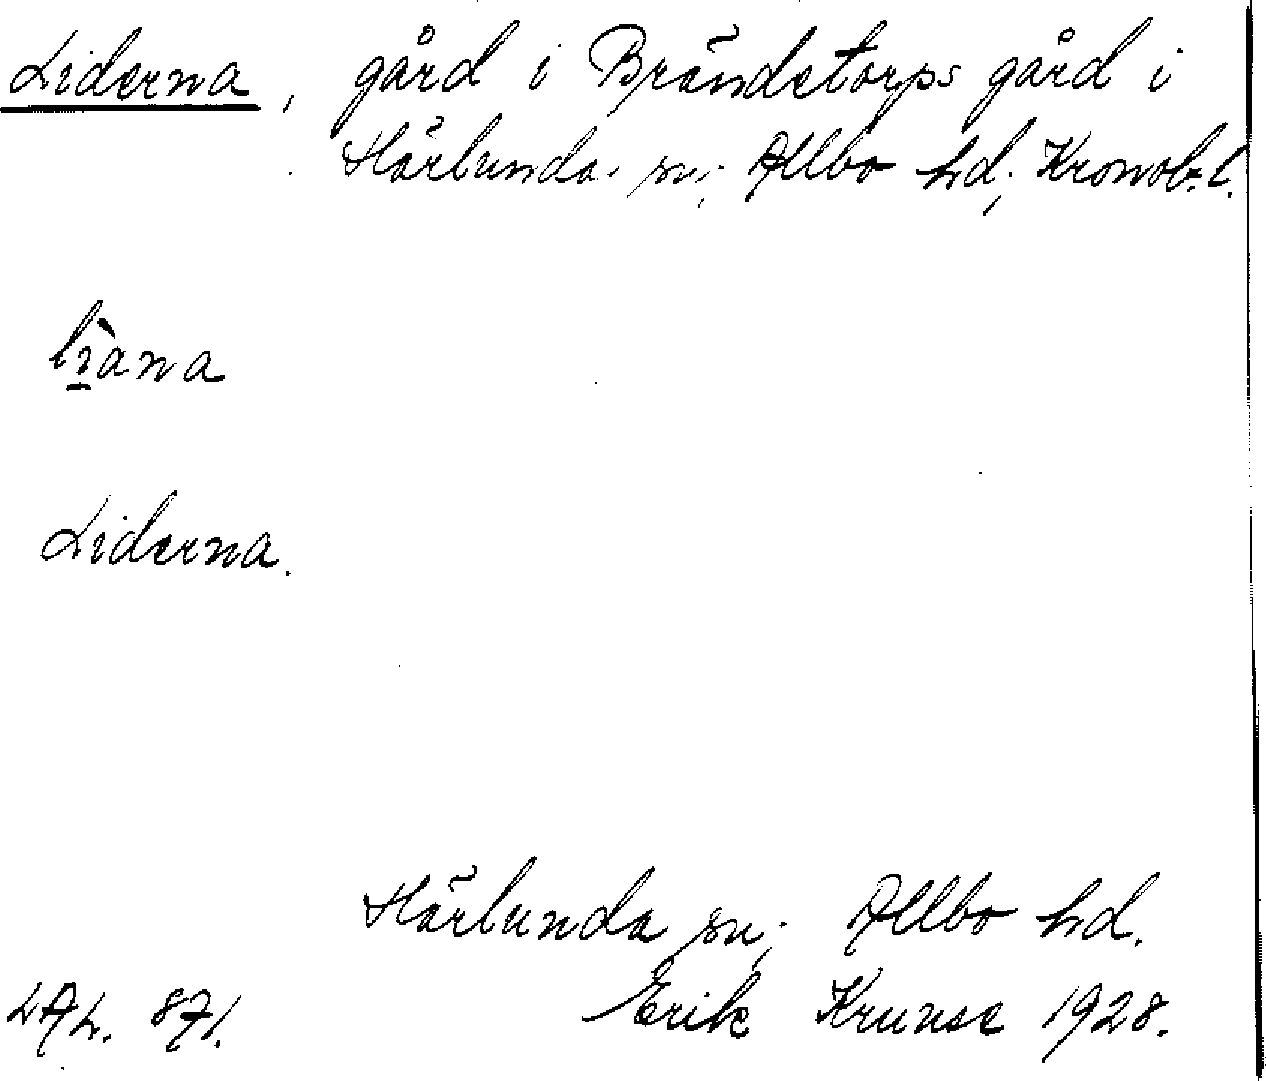 Liderna, gård i Brändetorps gård i
Härlunda sn; Allbo hd; Kronob. l.
lìana
Liderna.
Härlunda sn; Allbo hd.
LAL. 871. Erik Kruuse 1928.